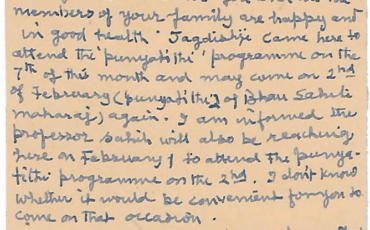 members of your family are happy and
in good health. Jagdishji came here to
attend the 'punyatithi' programme on the
7th of this month and may come on 2nd
of February (punyatithi) of Bhau Sahib
maharaj) again. I am informed the
professor sahib will also be reaching
here on February 1 to attend the punya-
tithi programme on the 2nd. I don't know
whether it would be convenient for you to
come on that occasion.